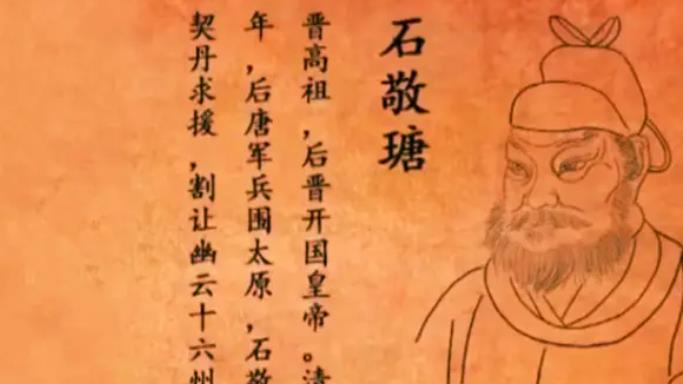 石敬瑭
晋高祖，后晋开国皇帝。清
年，后唐军兵围太原，石敬
契丹求援，割让幽云十六州